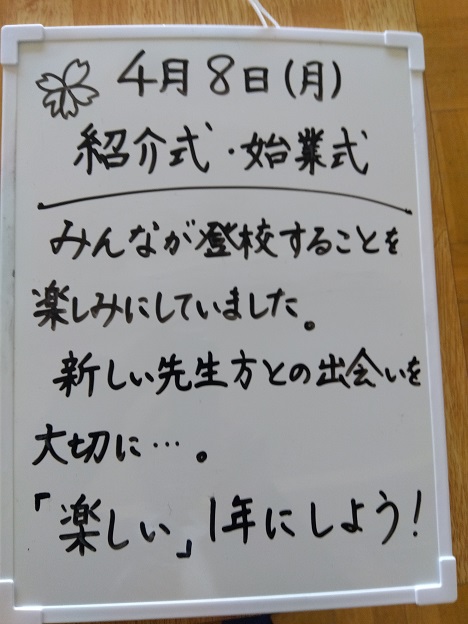 4月8日(月)
紹介式・始業式
みんなが登校することを
楽しみにしていました。
新しい先生方との出会いを
大切に…。
「楽しい」1年にしよう!